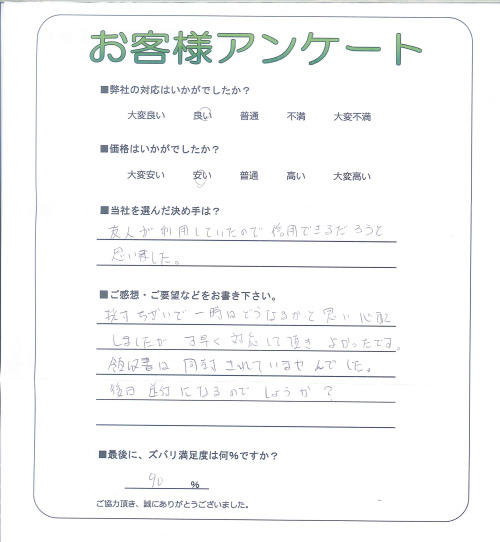 お客様アンケート
■弊社の対応はいかがでしたか？
大変良い 良い 普通 不満 大変不満
■価格はいかがでしたか？
大変安い 安い 普通 高い 大変高い
■当社を選んだ決め手は？
友人が利用していたので信用できるだろうと
思いました。
■ご感想・ご要望などをお書き下さい。
ちがいで一時はどうなるかと思い心配
しましたが す早く対応して頂き よかったです。
領収書は 同封されていませんでした。
後日 送付になるのでしょうか？
■最後に、ズバリ満足度は何％ですか？
90 ％
ご協力頂き、誠にありがとうございました。